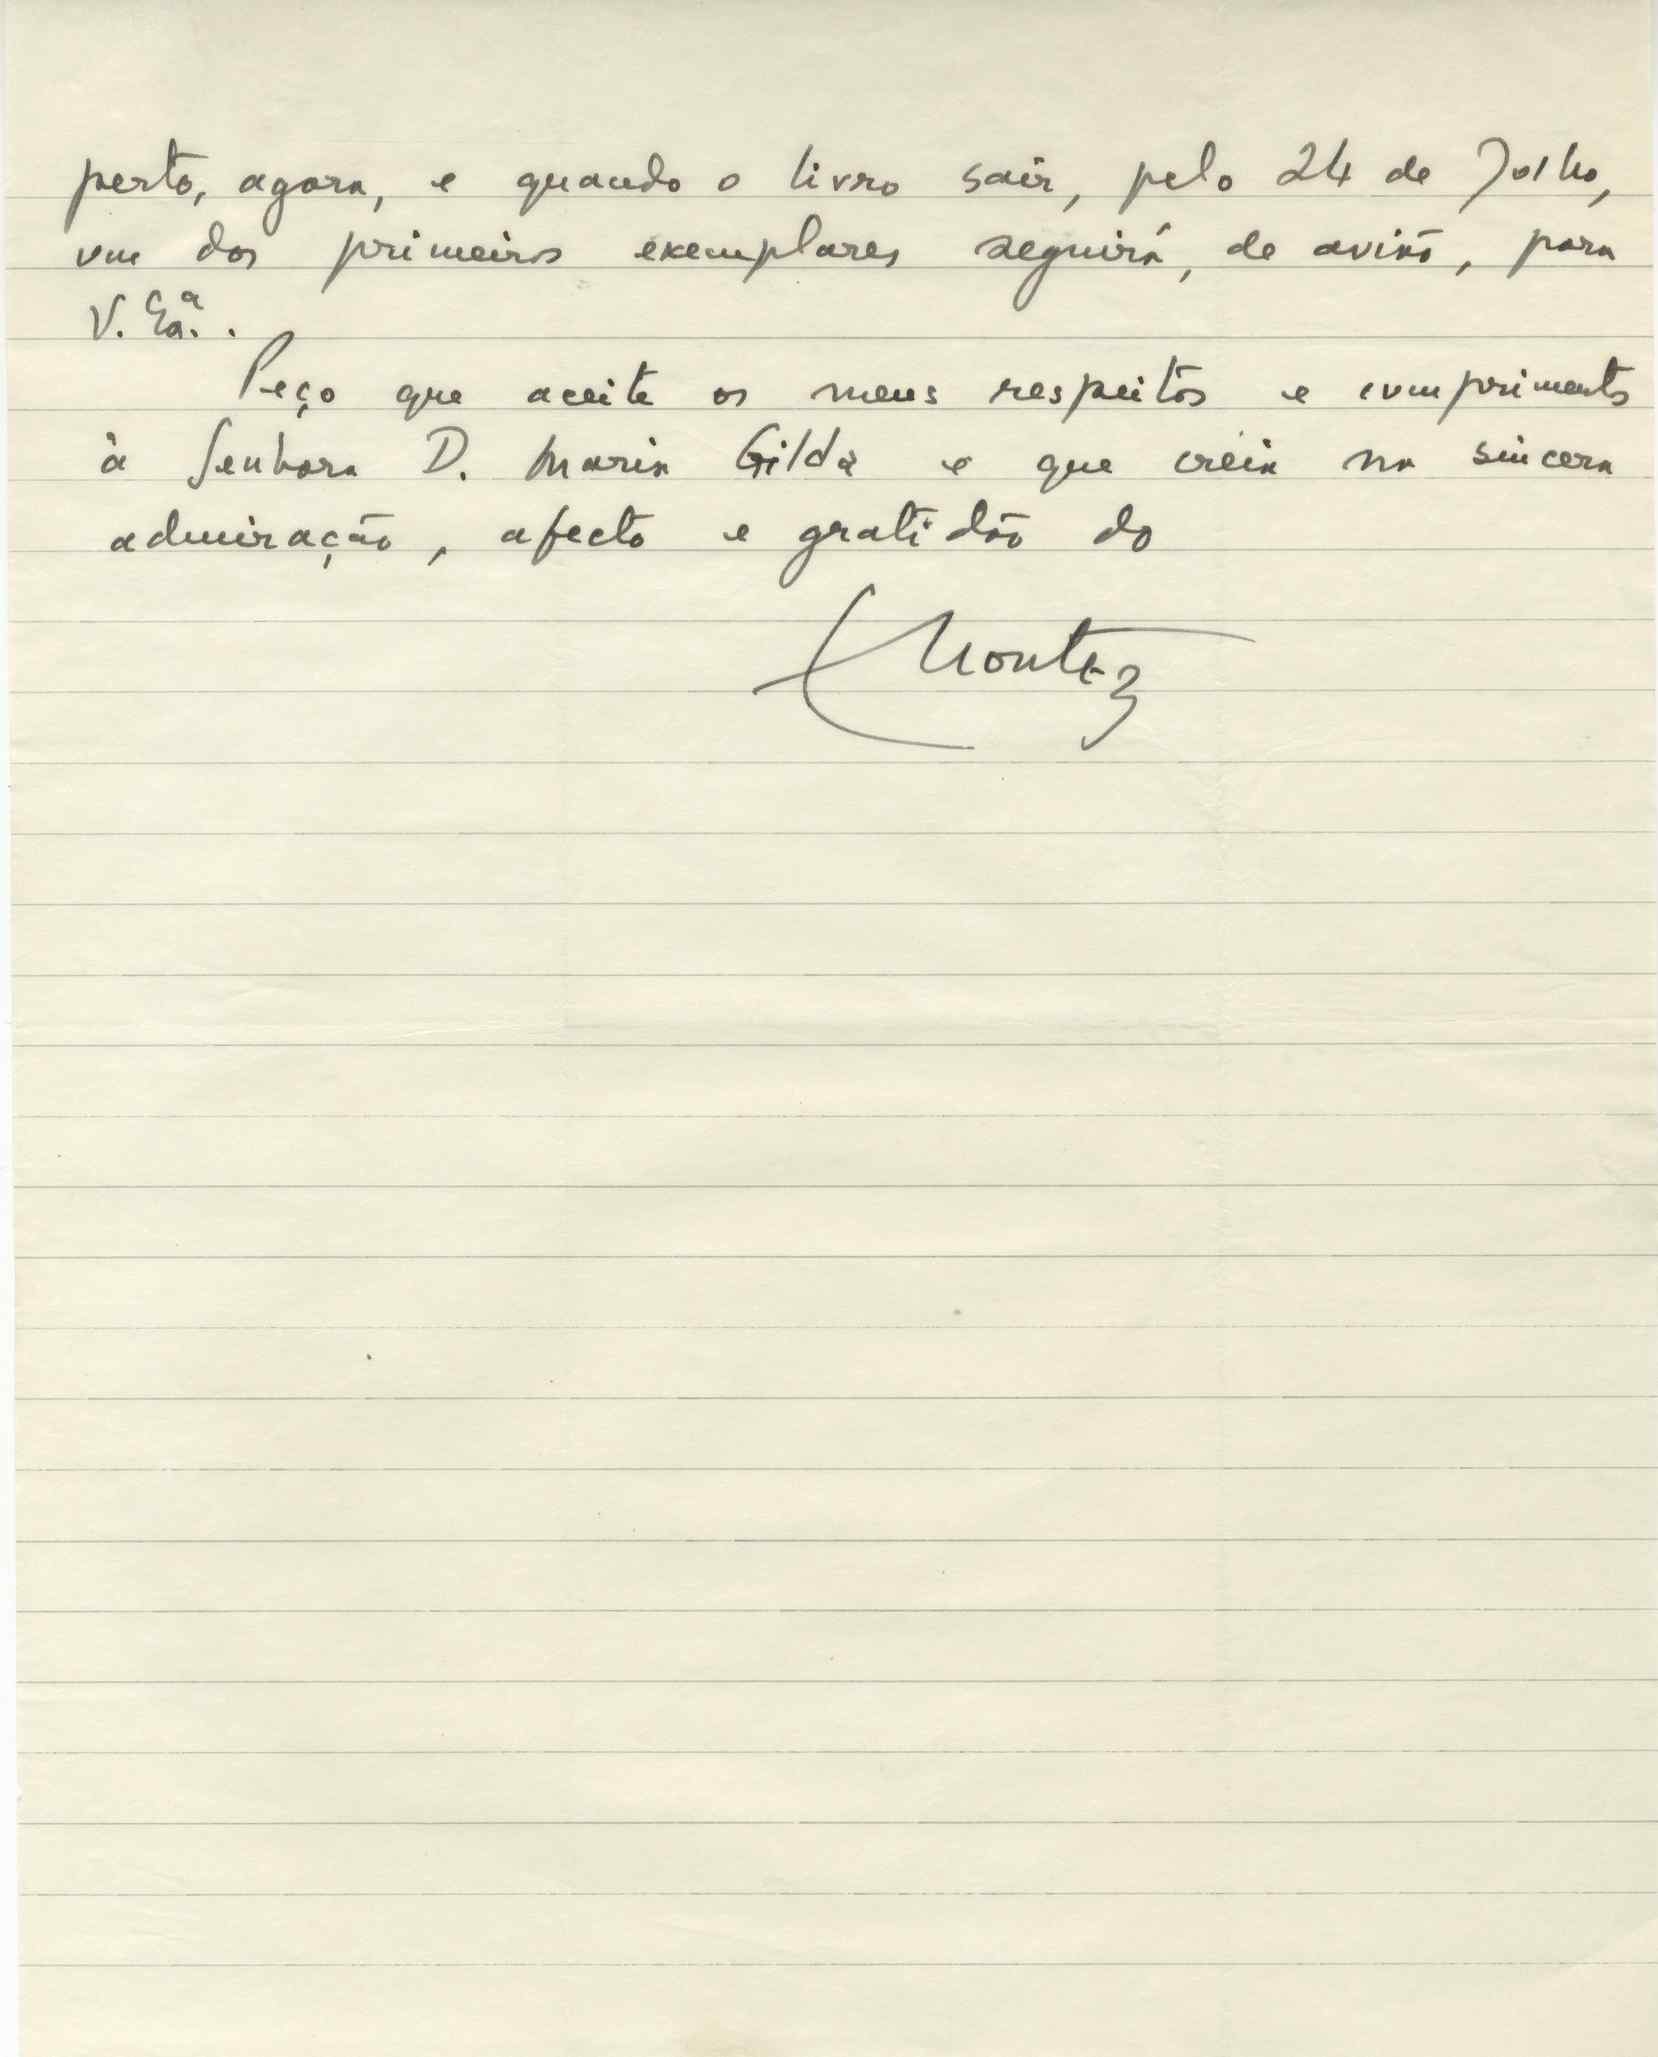 perto, agora, e quando o livro sair, pelo 24 de Julho,
um dos primeiros exemplares seguirá, de avião, para
V. Exª..
Peço que aceite os meus respeitos e cumprimentos
à Senhora D. Maria Gilda e que creia na sincera
admiração, afecto e gratidão do
Montez